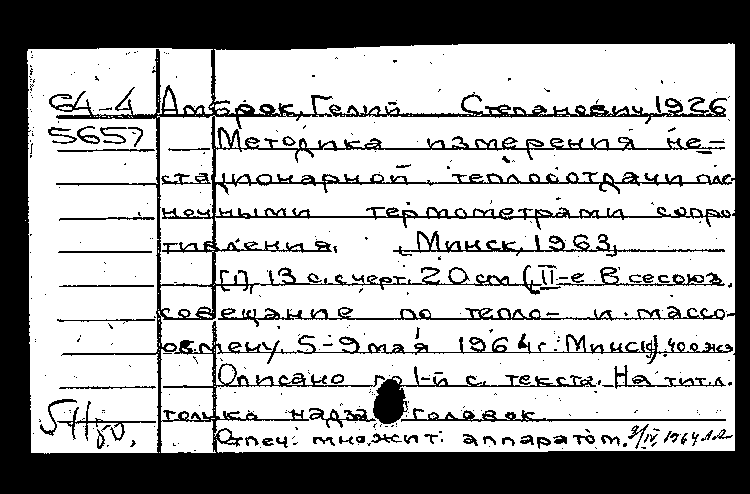 64-4 Амброк, Гелий Степанович, 1926
5657 Методика измерения не-
стационарной теплоотдачи пле-
ночными термометрами сопро-
тивления. [Минск, 1963]
[1], 13 с. с черт. 20 см (II-е Всесоюз.
совещание по тепло- и массо-
обмену. 5-9 мая 1964 г. Минск). 400 экз
Описано по 1-й с. текста. На тит. л.
только надзаголовок
Отпеч. множит. аппаратом. 3/IV 1964